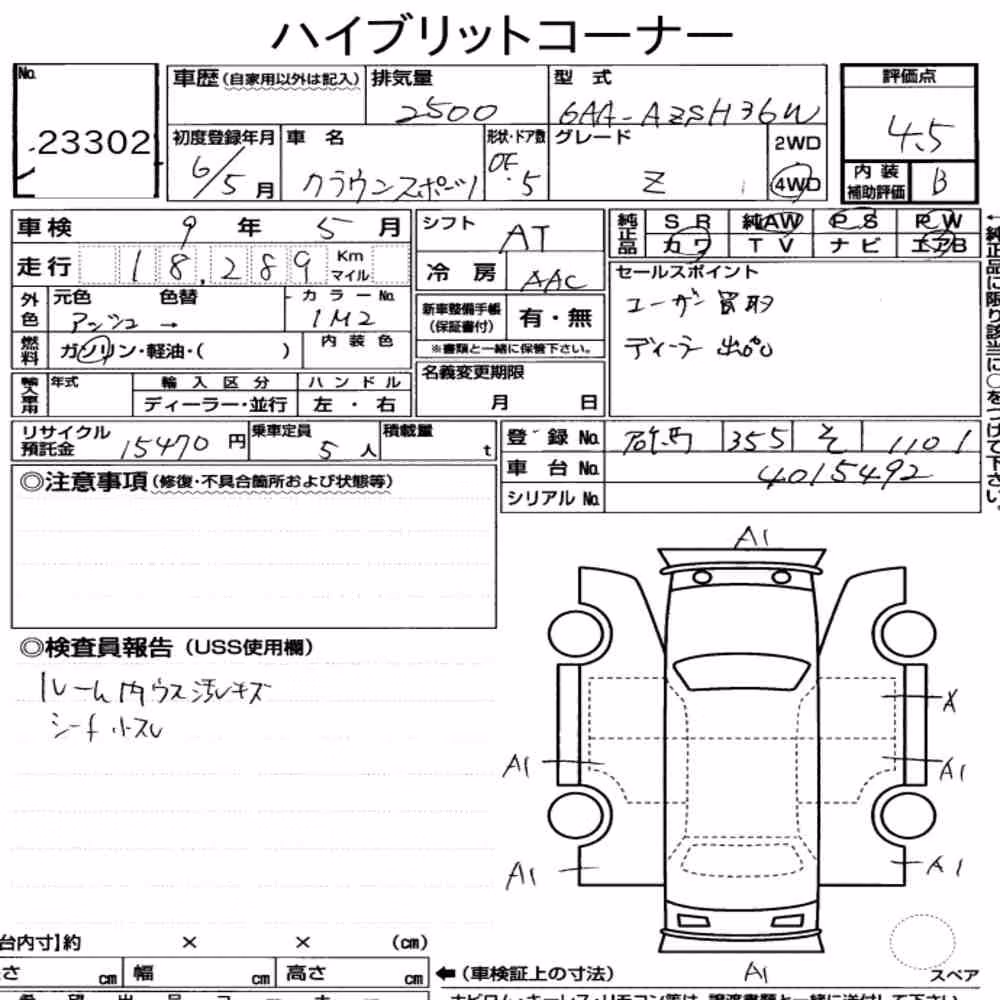 ハイブリットコーナー
No. 23302
車歴(自家用以外は記入)
排気量 2500
型式 6AA-AZSH36W
評価点 4.5
初度登録年月 6/5月
車名 クラウンスポーツ
形状・ドア数 5
グレード Z
2WD
4WD
内装補助評価 B
車検 9年 5月
シフト AT
純正品
SR 純AW PS PW
カワ TV ナビ エアB
走行 18,289 Km マイル
冷房 AAC
セールスポイント
ユーザー買取
ディーラー出品
外色 元色 アッシュ 色替 → カラーNo. 1M2
新車整備手帳(保証書付) 有・無
※書類と一緒に保管下さい。
燃料 ガソリン・軽油・( )
内装色
名義変更期限 月 日
輸入車用 年式
輸入区分 ディーラー・並行
ハンドル 左・右
リサイクル預託金 15470円
乗車定員 5人
積載量 t
登録No. 355 そ 1101
車台No. 4015492
シリアルNo.
←純正品に限り該当に○をつけて下さい。
◎注意事項(修復・不具合箇所および状態等)
◎検査員報告(USS使用欄)
ルーム内ウス汚レキズ
シート小スレ
A1
X
A1
A1
A1
A1
A1
スペア
台内寸】約 × × (cm)
さ cm 幅 cm 高さ cm
←(車検証上の寸法)